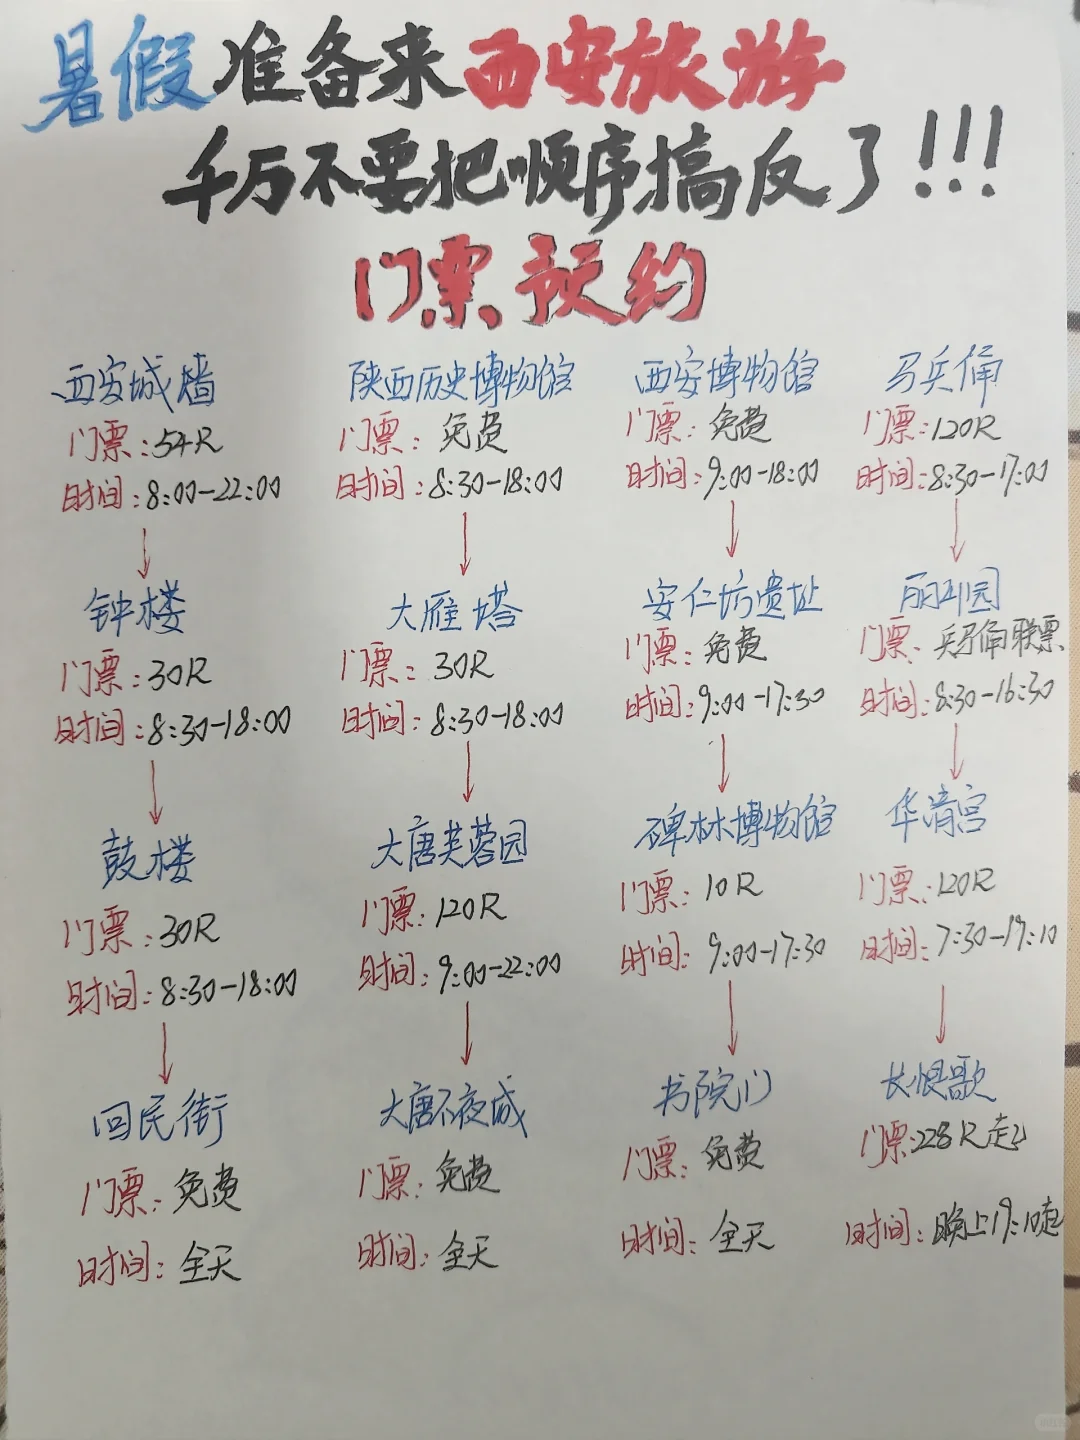 暑假准备来西安旅游
千万不要把顺序搞反了!!!
门票、预约
西安城墙
门票:54R
时间:8:00-22:00
钟楼
门票:30R
时间:8:30-18:00
鼓楼
门票:30R
时间:8:30-18:00
回民街
门票:免费
时间:全天
陕西历史博物馆
门票:免费
时间:8:30-18:00
大雁塔
门票:30R
时间:8:30-18:00
大唐芙蓉园
门票:120R
时间:9:00-22:00
大唐不夜城
门票:免费
时间:全天
西安博物馆
门票:免费
时间:9:00-18:00
安仁坊遗址
门票:免费
时间:9:00-17:30
碑林博物馆
门票:10R
时间:9:00-17:30
书院门
门票:免费
时间:全天
马兵俑
门票:120R
时间:8:30-17:00
丽利园
门票、兵马俑联票
时间:8:30-16:30
华清宫
门票:120R
时间:7:30-19:10
长恨歌
门票:228R起
时间:晚上19:10起